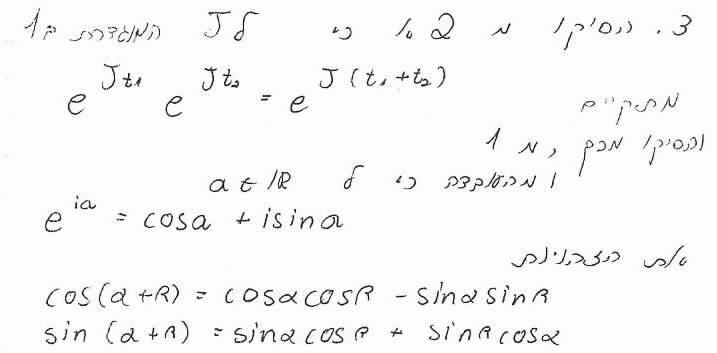 3. הסיקו מ 2 א כי לJ המוגדרת ב1
e^{Jt₁} e^{Jt₂} = e^{J(t₁+t₂)}
מתקיים
והסיקו מכך, מ 1
ומהעובדה כי ל a ∈ ℝ
e^{ia} = cosa + isina
את הזהויות
cos(α+β) = cosαcosβ - sinαsinβ
sin(α+β) = sinαcosβ + sinβcosα